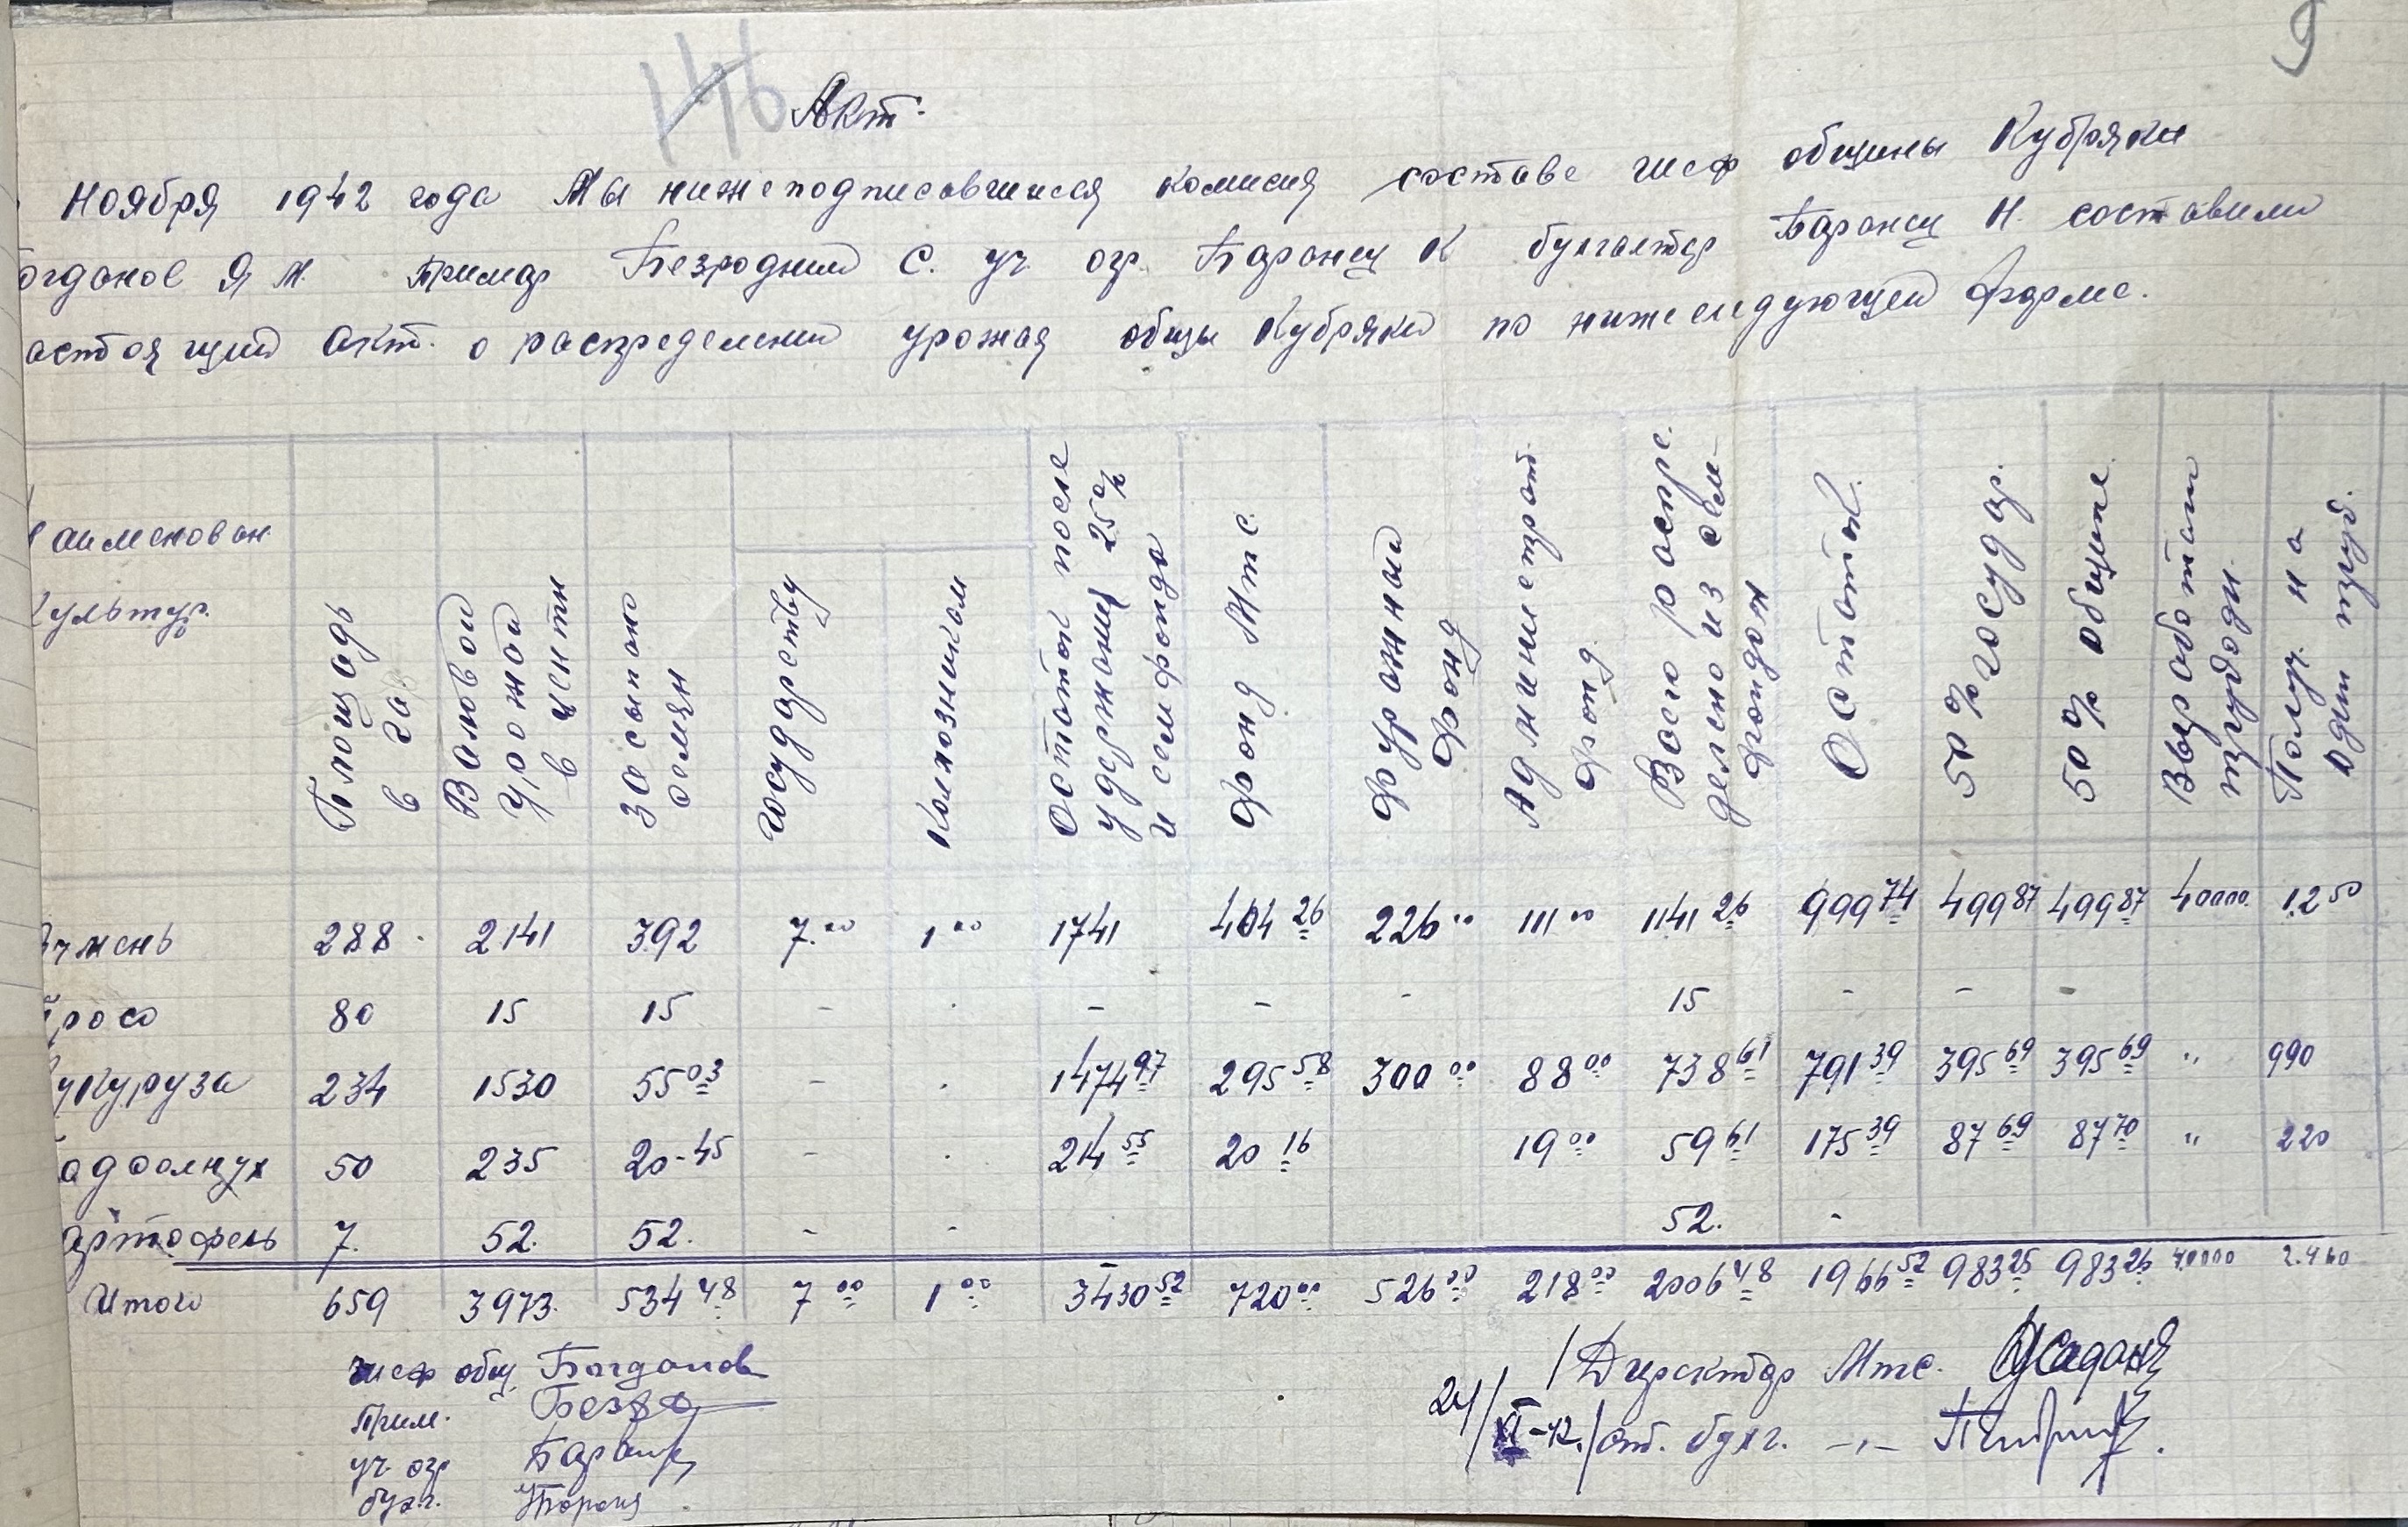 9
146
Акт.
Ноября 1942 года Мы нижеподписавшиеся комисия составе шеф общины Кубряки
огданов Я М. Примар Безродний С. уч. агр. Баранец К бухгалтер Баранец Н. составили
астоящий акт. о распределении урожая общы Кубряки по нижеследующей форме.
аименован культур.
Площадь в га
Валовой урожай в центн
Засыпано семян
государству
колхозникам
Остаток после удержания 25% и семфонда
Фонд Мтс.
Фуражный Фонд
Администрат. фонд.
Всего распре. делено из сем- фондом
Остаток.
50% государ.
50% общине.
Выработан трудодн.
Получ. на один труд.
чмень 288. 2141 392 7.00 1 00 1741 404 26 226 00 111 00 1141 26 999 74 499 87 499 87 40000. 1.250
росо 80 15 15 - . - - - 15 - - -
укуруза 234 1530 55 03 - . 1474 97 295 58 300 00 88 00 738 61 791 39 395 69 395 69 " 990
одсолнух 50 235 20-45 - . 214 55 20 16 19 00 59 61 175 39 87 69 87 70 " 220
артофель 7. 52. 52. - - 52. -
Итого 659 3973. 534 48 7 00 1 00 3430 52 720 00 526 00 218 00 2006 48 1966 52 983 25 983 26 40000 2.460
шеф общ. Богданов
Прим. Безро
уч. агр Баранец
бухг. Баранец
Директор Мтс.
24/XI-42. ст. бухг. -"-